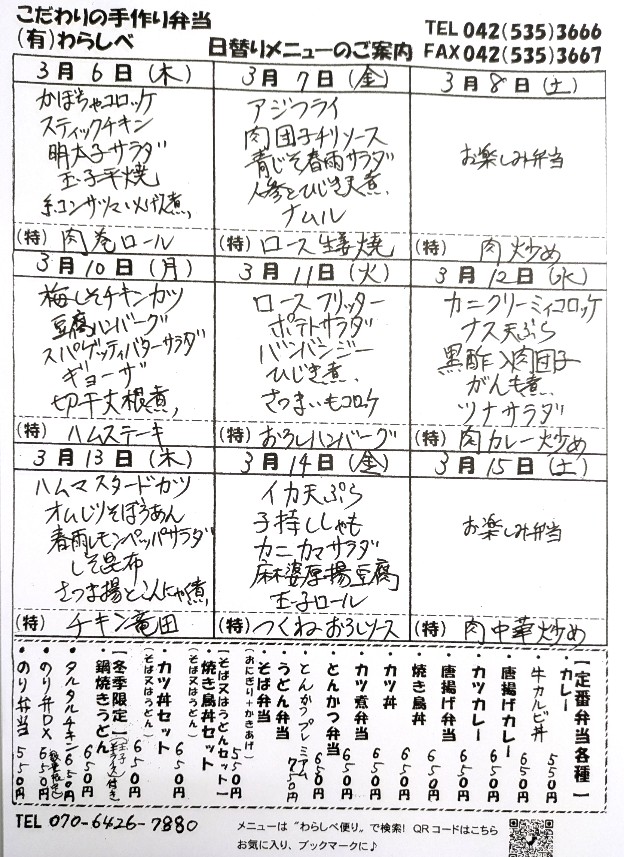 こだわりの手作り弁当
(有)わらしべ
日替りメニューのご案内
TEL 042(535)3666
FAX 042(535)3667
3月6日(木)
かぼちゃコロッケ
スティックチキン
明太子サラダ
玉子平焼
糸コンサツマいも煮
(特) 肉巻ロール
3月7日(金)
アジフライ
肉団子チリソース
青じそ春雨サラダ
人参とひじき天煮
ナムル
(特) ロース生姜焼
3月8日(土)
お楽しみ弁当
(特) 肉炒め
3月10日(月)
梅しそチキンカツ
豆腐ハンバーグ
スパゲッティバターサラダ
ギョーザ
切干大根煮
(特) ハムステーキ
3月11日(火)
ロースフリッター
ポテトサラダ
バンバンジー
ひじき煮
さつまいもコロケ
(特) おろしハンバーグ
3月12日(水)
カニクリーミィコロッケ
ナス天ぷら
黒酢入肉団子
がんも煮
ツナサラダ
(特) 肉カレー炒め
3月13日(木)
ハムマスタードカツ
オムレツそぼろあん
春雨レモンペッパサラダ
しそ昆布
さつま揚とこんにゃく煮
(特) チキン竜田
3月14日(金)
イカ天ぷら
子持ししゃも
カニカマサラダ
麻婆厚揚豆腐
玉子ロール
(特) つくねおろしソース
3月15日(土)
お楽しみ弁当
(特) 肉中華炒め
【定番弁当各種】
・カレー 550円
牛カルビ丼 650円
・唐揚げカレー 650円
・カツカレー 650円
・唐揚げ弁当 650円
・焼き鳥丼 650円
・カツ丼 650円
・カツ煮弁当 650円
・とんかつ弁当 650円
とんかつプレミアム 750円
・うどん弁当
・そば弁当
(おにぎり+かきあげ) 550円
【そば又はうどんセット】
・焼き鳥丼セット
(そば又はうどん) 650円
・カツ丼セット
(そば又はうどん) 650円
【冬季限定】
・鍋焼きうどん 650円
・タルタルチキン 650円
・のり弁DX 650円
・のり弁当 550円
TEL 070-6426-7880
メニューは“わらしべ便り”で検索! QRコードはこちら
お気に入り、ブックマークに♪